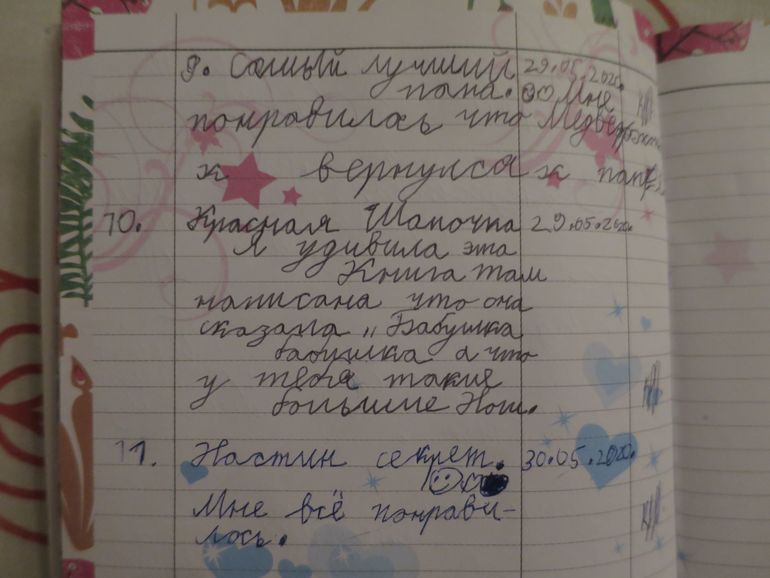 9. Самый лучший 29.05.2020.
папа. Мне
понравилось что Медвежо
к вернулся к папе.
10. Красная Шапочка 29.05.2020.
Я удивила эта
Книга там
написана что она
сказала „Бабушка
бабушка а что
у тебя такие
большие Ноги.
11. Настин секрет. 30.05.2020.
Мне всё понрави-
лось.